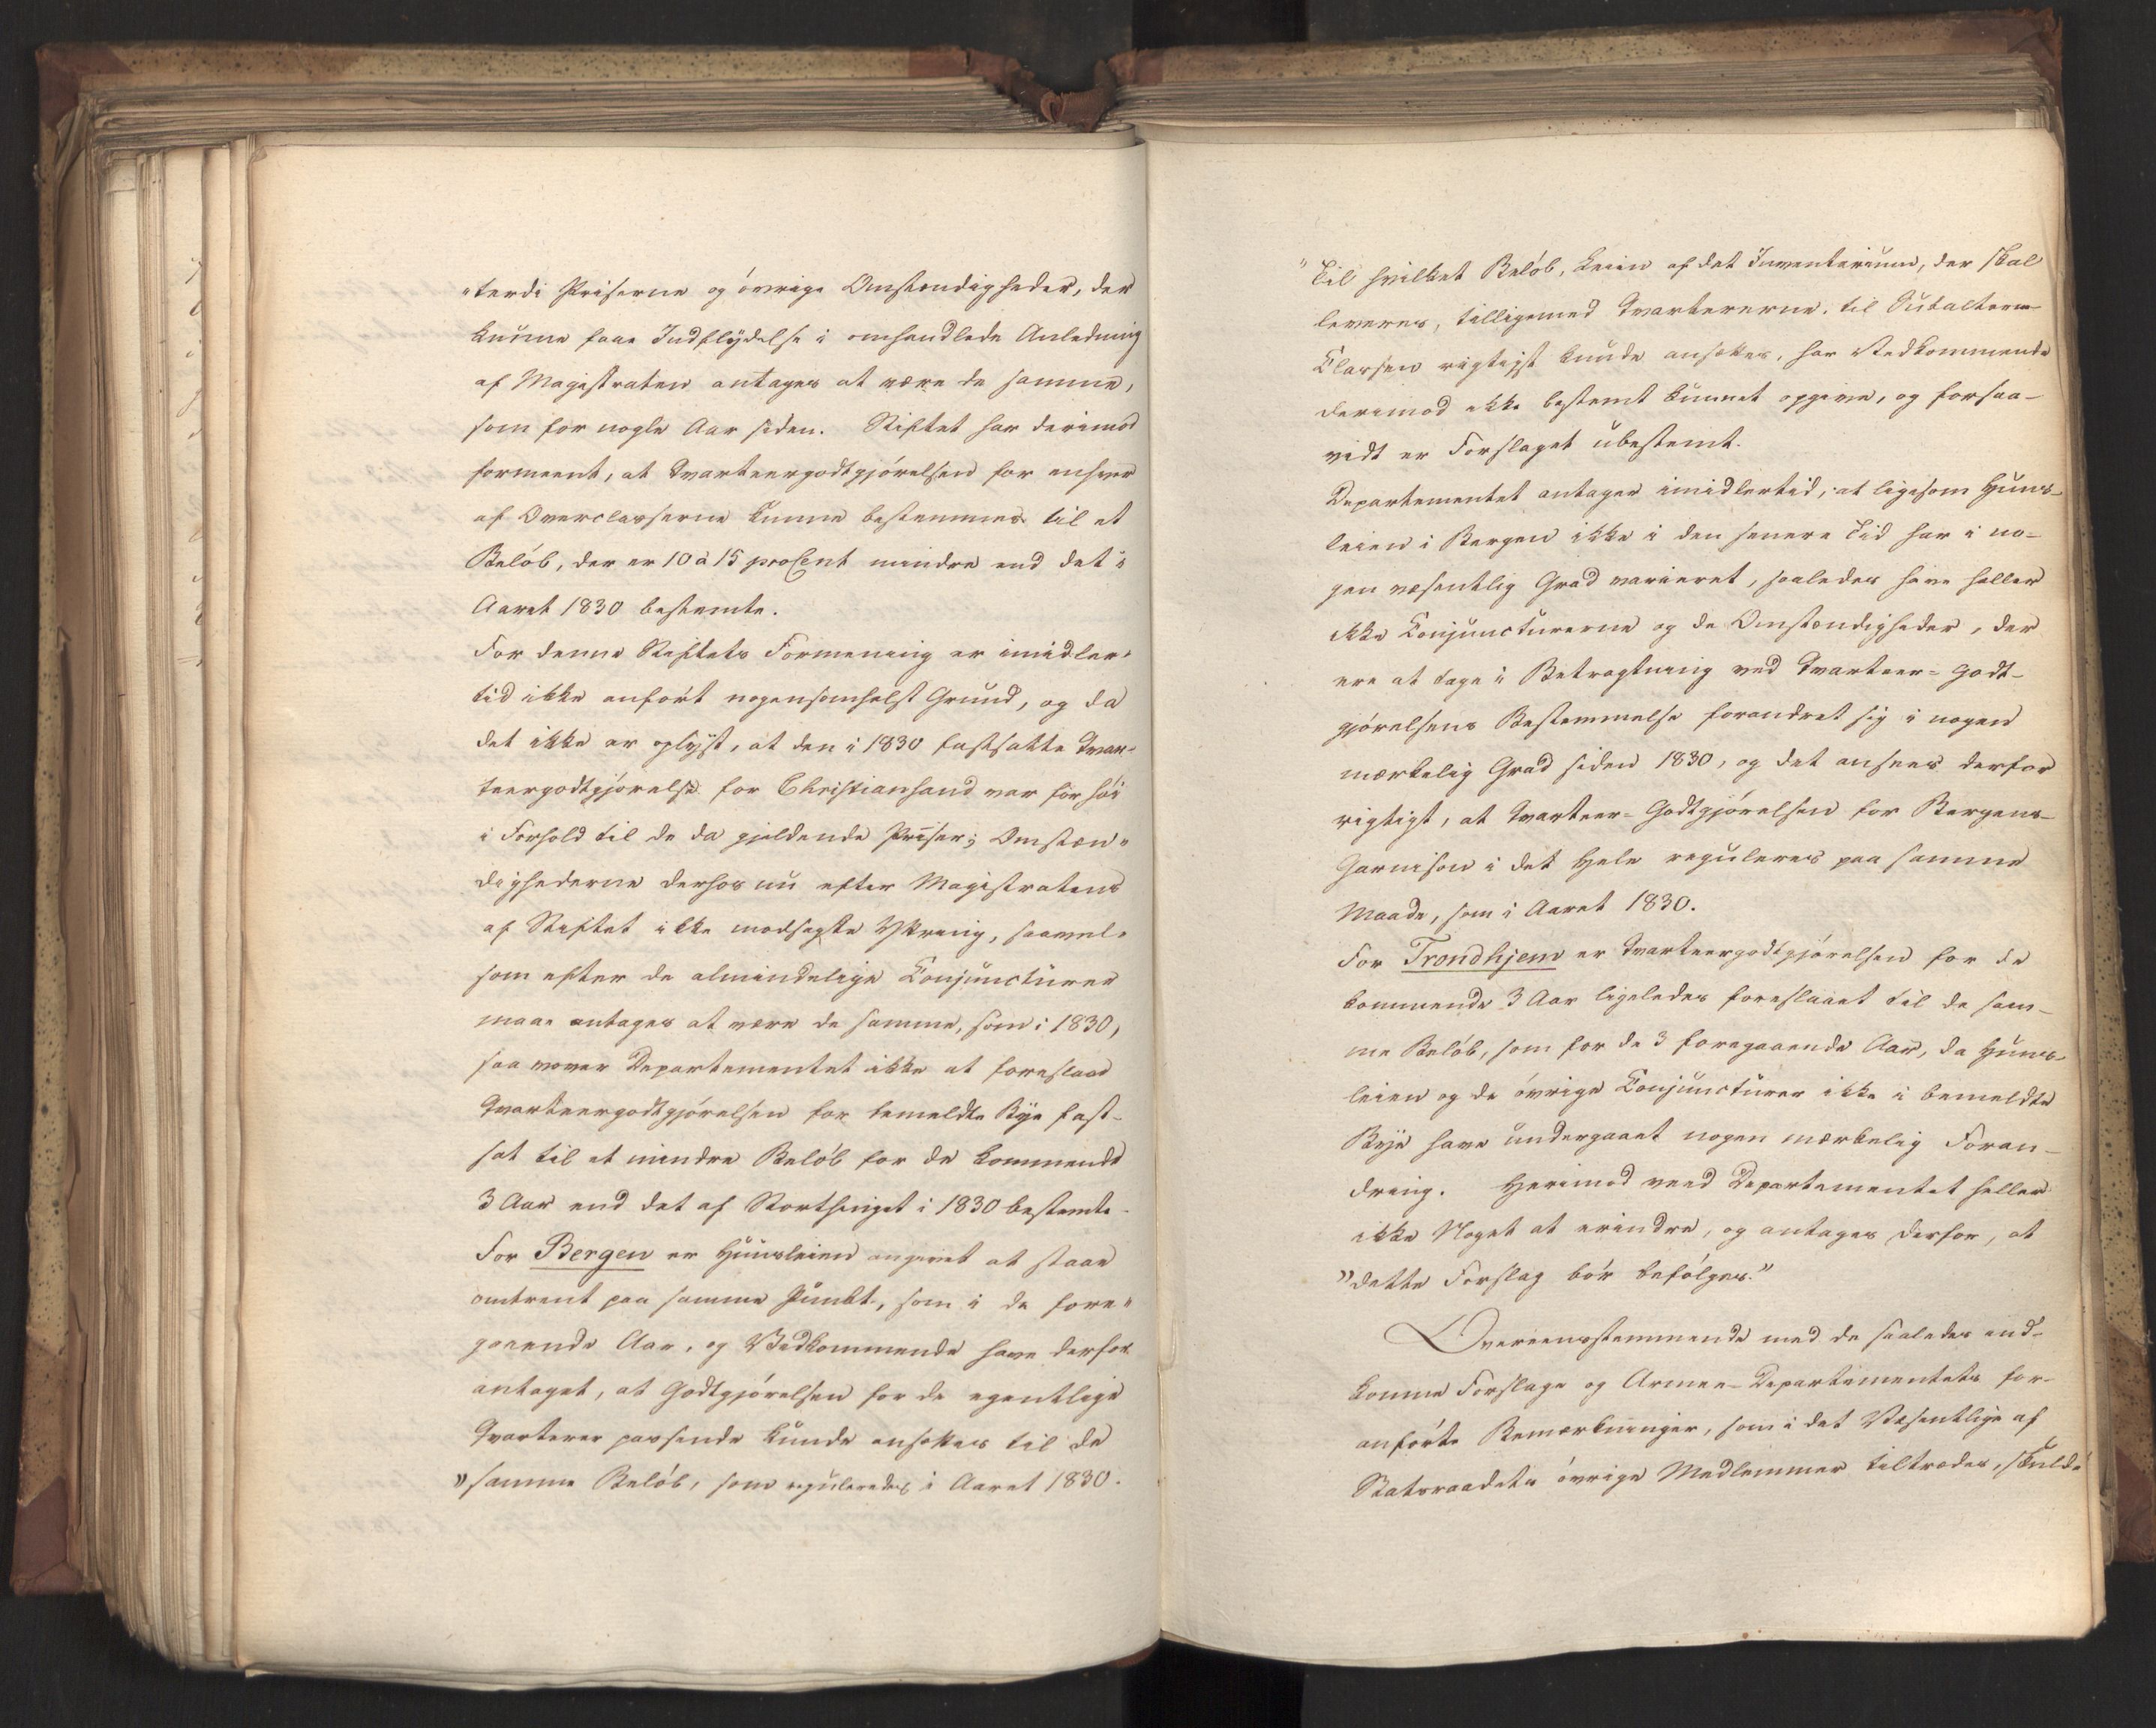 "terdi Priserne og øvrige Omstændigheder, der
kunne faae Indflydelse i omhandlede Anledning
af Magistraten antages at være de samme,
som for nogle Aar siden. Stiftet har derimod
formeent, at Qvarteergodtgjørelsen for enhver
af Overclasserne kunne bestemmes til et
Beløb, der er 10 à 15 proCent mindre end det i
Aaret 1830 bestemte.
For denne Stiftets Formening er imidler-
tid ikke anført nogensomhelst Grund, og da
det ikke er oplyst, at den i 1830 fastsatte Qvar-
teergodtgjørelse for Christiansand var for høi
i Forhold til de da gjeldende Priser; Omstæn-
dighederne derhos nu efter Magistratens
af Stiftet ikke modsagte Yttring, saavel-
som efter de almindelige Conjuncturer
maae antages at være de samme, som i 1830,
saa vover Departementet ikke at foreslaae
Qvarteergodtgjørelsen for bemeldte Bye fast-
sat til et mindre Beløb for de kommende
3 Aar end det af Storthinget i 1830 bestemte.
For Bergen er Huusleien angivet at staae
omtrent paa samme Punkt, som i de fore-
gaaende Aar, og Vedkommende have derfor
antaget, at Godtgjørelsen for de egentlige
Qvarterer passende kunde ansættes til de
"samme Beløb, som reguleredes i Aaret 1830.
"Til hvilket Beløb, Leien af det Inventarium, der skal
leveres, tilligemed Qvartererne, til Subaltern-
Classen rigtigst kunde ansættes, har Vedkommende
derimod ikke bestemt kunnet opgive, og forsaa-
vidt er Forslaget ubestemt.
Departementet antager imidlertid, at ligesom Huus-
leien i Bergen ikke i den senere Tid har i no-
gen væsentlig Grad varieret, saaledes have heller
ikke Conjuncturerne og de Omstændigheder, der
ere at tage i Betragtning ved Qvarteer-Godt-
gjørelsens Bestemmelse forandret sig i nogen
mærkelig Grad siden 1830, og det ansees derfor
rigtigt, at Qvarteer-Godtgjørelsen for Bergens-
Garnison i det Hele reguleres paa samme
Maade, som i Aaret 1830.
For Trondhjem er Qvarteergodtgjørelsen for de
kommende 3 Aar ligeledes foreslaaet til de sam-
me Beløb, som for de 3 foregaaende Aar, da Huus-
leien og de øvrige Conjuncturer ikke i bemeldte
Bye have undergaaet nogen mærkelig Foran-
dring. Herimod veed Departementet heller
ikke Noget at erindre, og antages derfor, at
"dette Forslag bør befølges."
Overeensstemmende med de saaledes ind-
komne Forslage og Armee-Departementets for-
anførte Bemærkninger, som i det Væsentlige af
Statsraadets øvrige Medlemmer tiltrædes, skulde